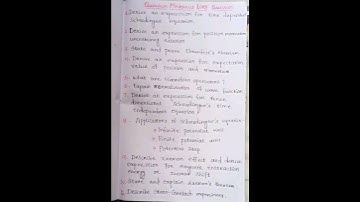 Quantum Mechanics
1. Derive an expression for time dependent
Schrodinger equation
2. Derive an expression for position momentum
uncertainty relation
3. State and prove Ehrenfest's theorem
4. Derive an expression for expectation
value of position and momentum
5. What are Hamiltonian operators?
6. Explain normalization of wave function
7. Derive an expression for three
dimensional Schrodinger's time
independent equation
8. Applications of Schrodinger's equation
Infinite potential well
Finite potential well
Potential Step
Describe Zeeman effect and derive
expression for magnetic interaction
energy
State and explain Larmor's theorem
Describe Stern Gerlach experiment.